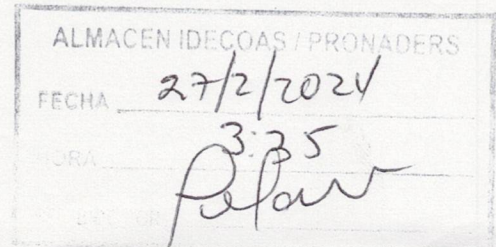 ALMACEN IDECOAS / PRONADERS
FECHA 27/2/2024
HORA 3:35